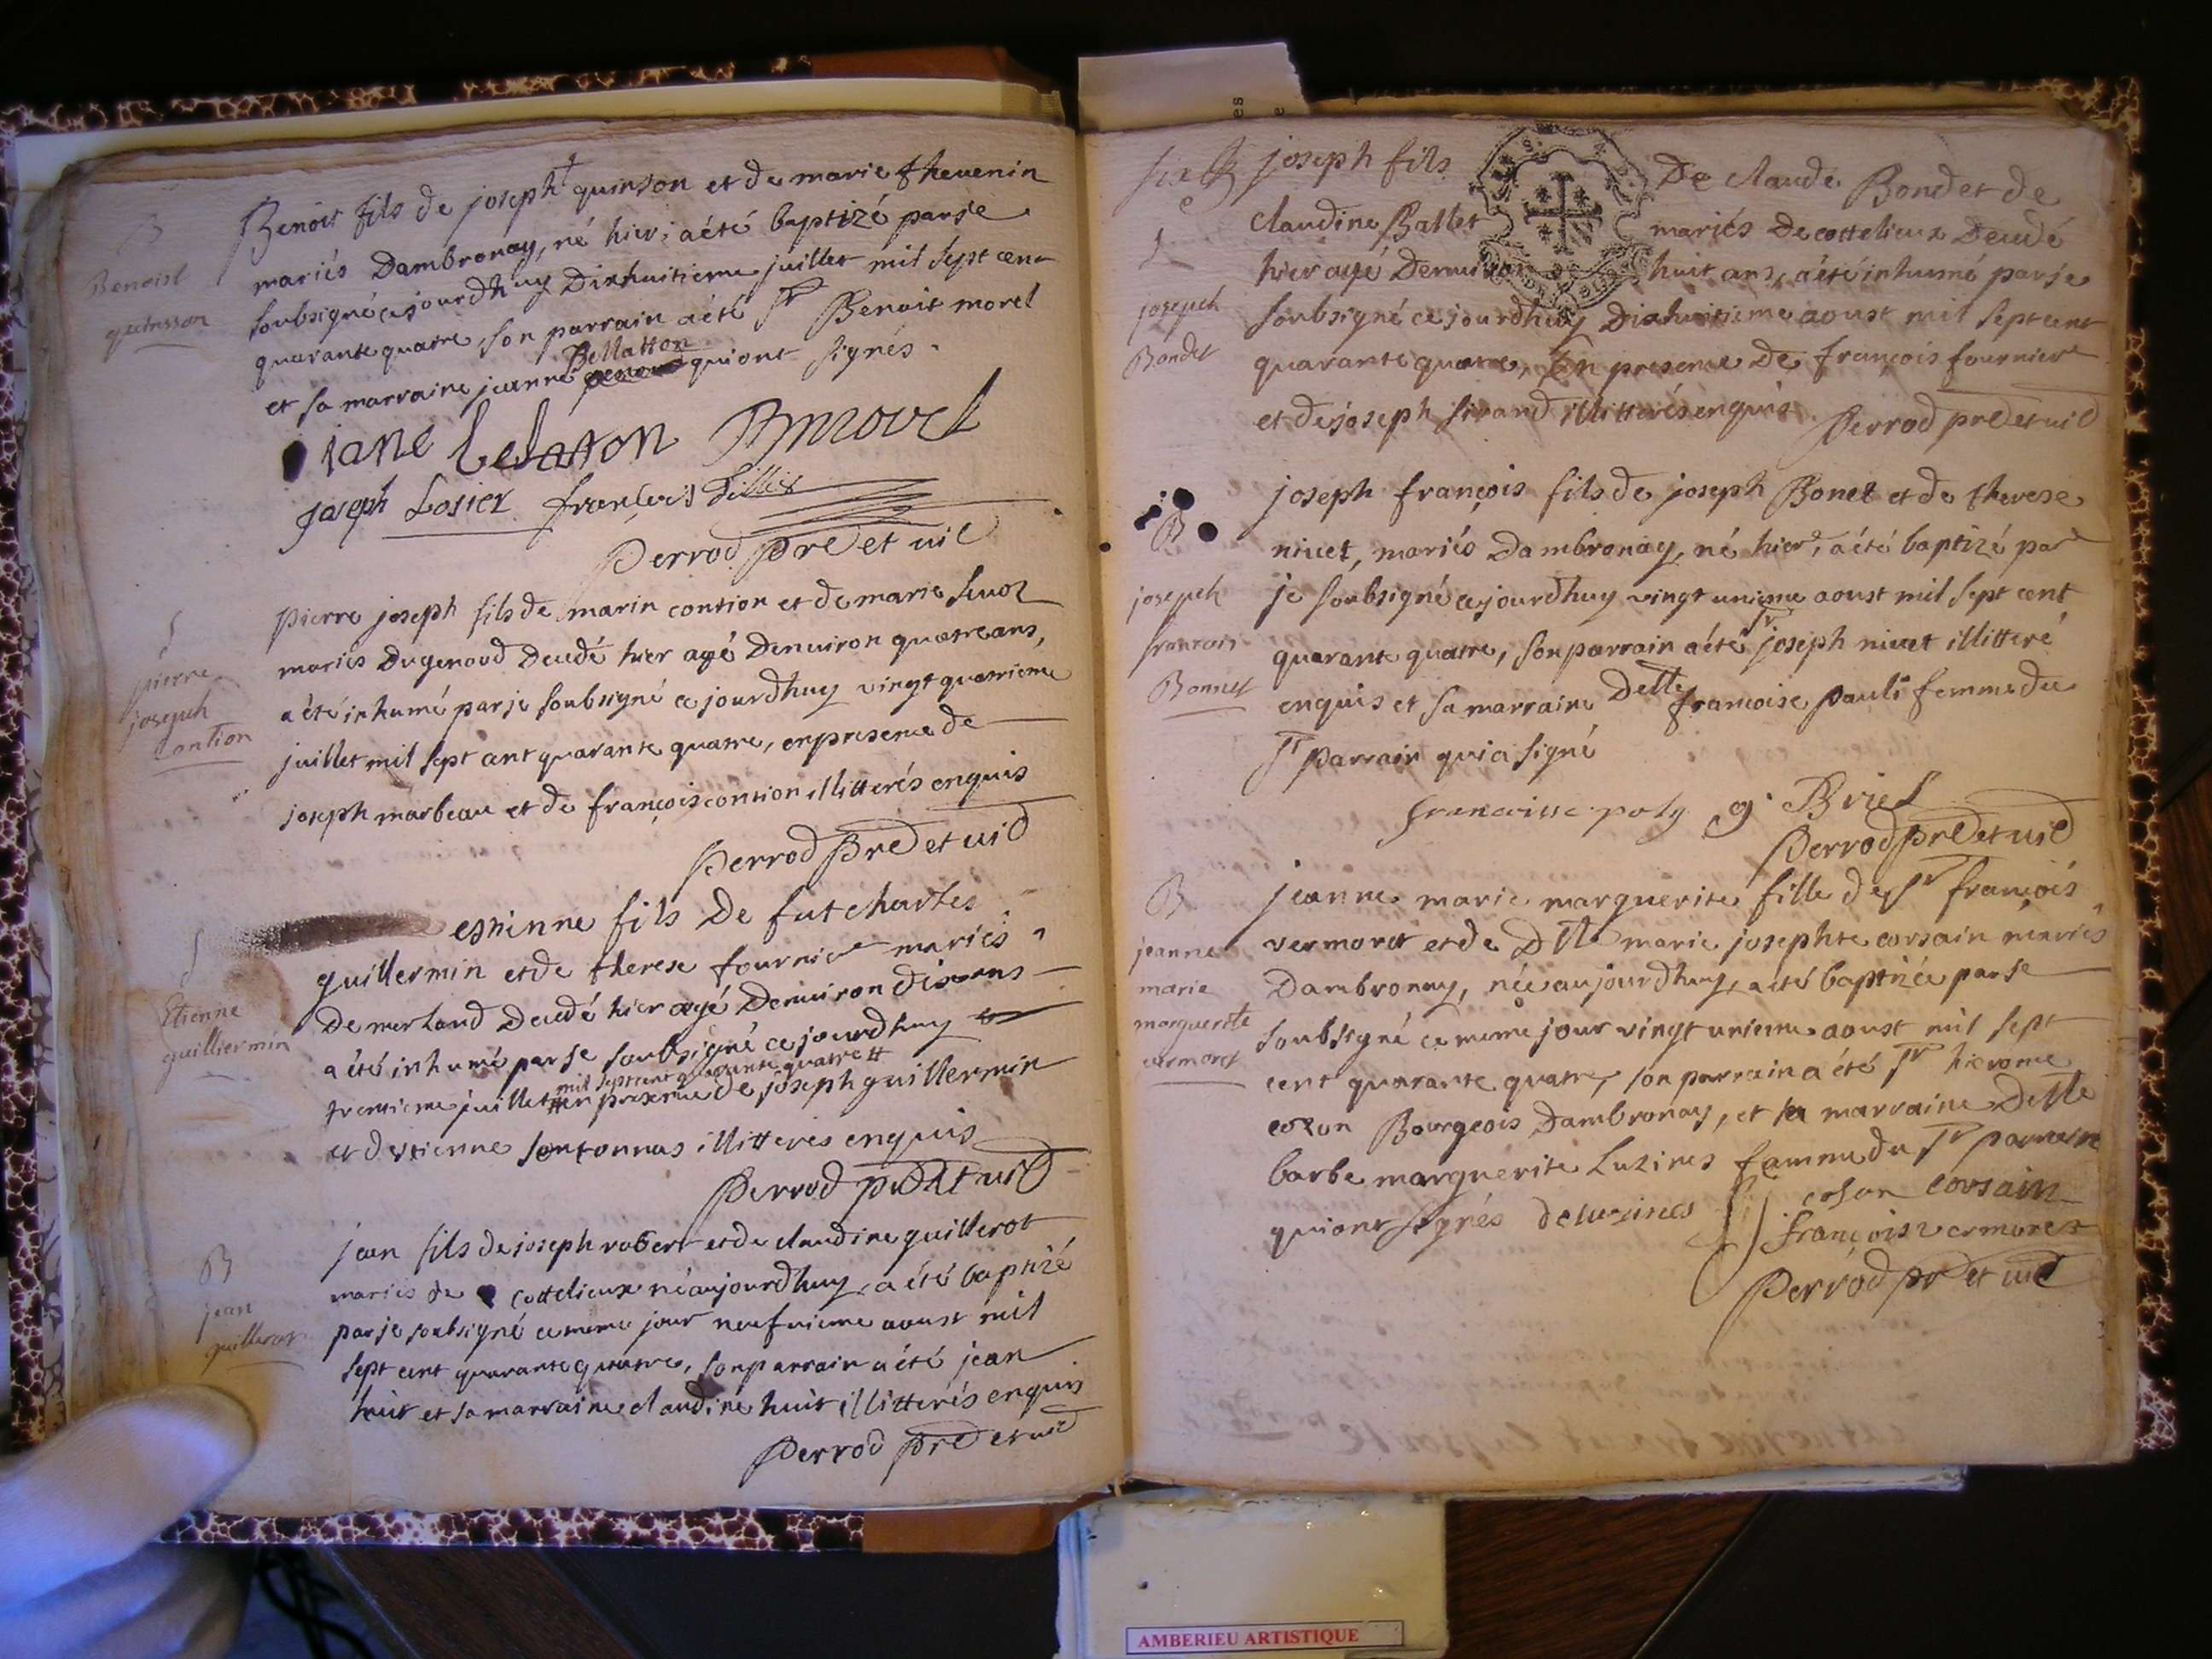 B
Benoist
quinsson
Benoit fils de joseph quinson et de marie thevenin
mariés Dambronay, né hier, a été baptizé par je
soubsigné ce jourdhuy Dixhuitieme juillet mil sept cent
quarante quatre, son parrain a été Sr Benoit morel
Bellatton
et sa marraine jeanne qui ont signés.
jane belaton Bmorel
Joseph Losier françois
Perrod pre et vic
pierre
joseph
Contion
pierre joseph fils de marin contion et de marie
mariés Dugenoud Decedé hier agé Denviron quatre ans,
a été inhumé par je soubsigné ce jourdhuy vingt quatrieme
juillet mil sept cent quarante quatre, en presence de
joseph marbeau et de françois contion illitterés enquis
Perrod Pre et vic
Etienne
guilliermin
estienne fils De fut charles
guillermin et de therese fournier mariés
De merland Decedé hier agé Denviron dix ans
a été inhumé par je soubsigné ce jourdhuy
mil sept cent quarante quatre
trentieme juillet en presence de joseph guillermin
et destienne sontonnas illitteres enquis
Perrod pre et vic
B
jean
guillerot
jean fils de joseph robert et de claudine guillerot
mariés de cottelieux né aujourdhuy, a été baptizé
par je soubsigné ce meme jour neufvieme aoust mil
sept cent quarante quatre, son parrain a été jean
huit et sa marraine claudine huit illitterés enquis
Perrod pre et vic
six
joseph
Bondet
joseph fils De claude Bondet de
claudine Ballet mariés De cottelieux Decedé
hier agé Denviron huit ans, a été inhumé par je
soubsigné ce jourdhuy Dixhuitieme aoust mil sept cent
quarante quatre, En presence De françois fournier
et de joseph sirand illitterés enquis
Perrod pre et vic
B
joseph
francois
Bonnet
joseph françois fils de joseph Bonet et de therese
nivet, mariés Dambronay, né hier, a été baptizé par
je soubsigné ce jourdhuy vingt unieme aoust mil sept cent
quarante quatre, son parrain a été Sr joseph nivet illitteré
enquis et sa marraine Delle francoise pauli femme du
Sr parrain qui a signé
francoisse poly g. Briel
Perrod pre et vic
B
jeanne
marie
marguerite
vermoret
jeanne marie marguerite fille de Sr françois
vermoret et de Dlle marie josephte corsain mariés
Dambronay, née aujourdhuy, a été baptizée par je
soubsigné ce meme jour vingt unieme aoust mil sept
cent quarante quatre, son parrain a été Sr hierome
colon Bourgeois Dambronay, et sa marraine Delle
barbe marguerite Luzines femme du Sr parrain
qui ont signés deluzines colon corsain
françois vermoret
Perrod pr et vic
AMBERIEU ARTISTIQUE